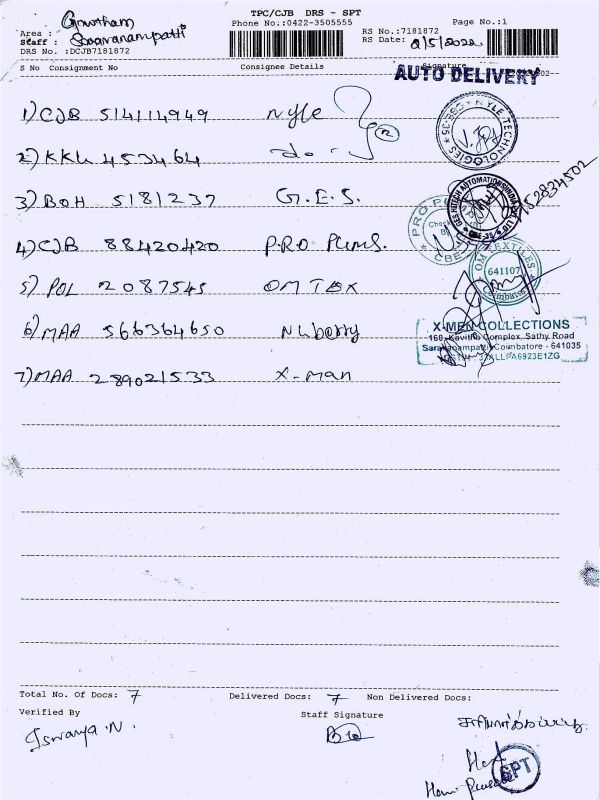 TPC/CJB DRS - SPT
Phone No.:0422-3505555
Page No.:1
Area : Gowtham
Staff : Saravanampatti
DRS No. :DCJB7181872
RS No.:7181872
RS Date: 2/5/2022
S No Consignment No Consignee Details Signature
AUTO DELIVERY
1) CJB 514114949 Nyle
2) KKK 453464 do
3) BOH 5181237 G.E.S.
4) CJB 88420420 P.R.O Pums.
5) POL 2087545 OM Tex
6) MAA 566364650 Nuberry
7) MAA 289021533 X-man
NYLE TECHNOLOGIES * CBE-35 *
PRO PUMPS
CBE
OM TEXTILES
641107
Coimbatore
X-MEN COLLECTIONS
160, Kavitha Complex, Sathy Road
Saravanampatti, Coimbatore - 641035
Total No. Of Docs: 7 Delivered Docs: 7 Non Delivered Docs:
Verified By Staff Signature
Iswarya .N.
SPT